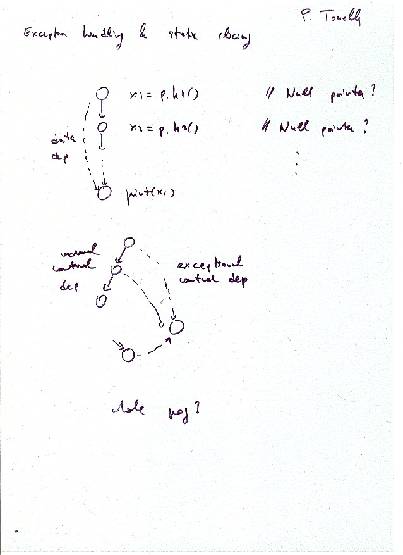 P. Tonella
Exception handling & state slicing
x1 = p.h1() // Null pointer?
x2 = p.h2() // Null pointer?
data
dep
print(x1)
normal
control
dep
exceptional
control dep
whole prog?